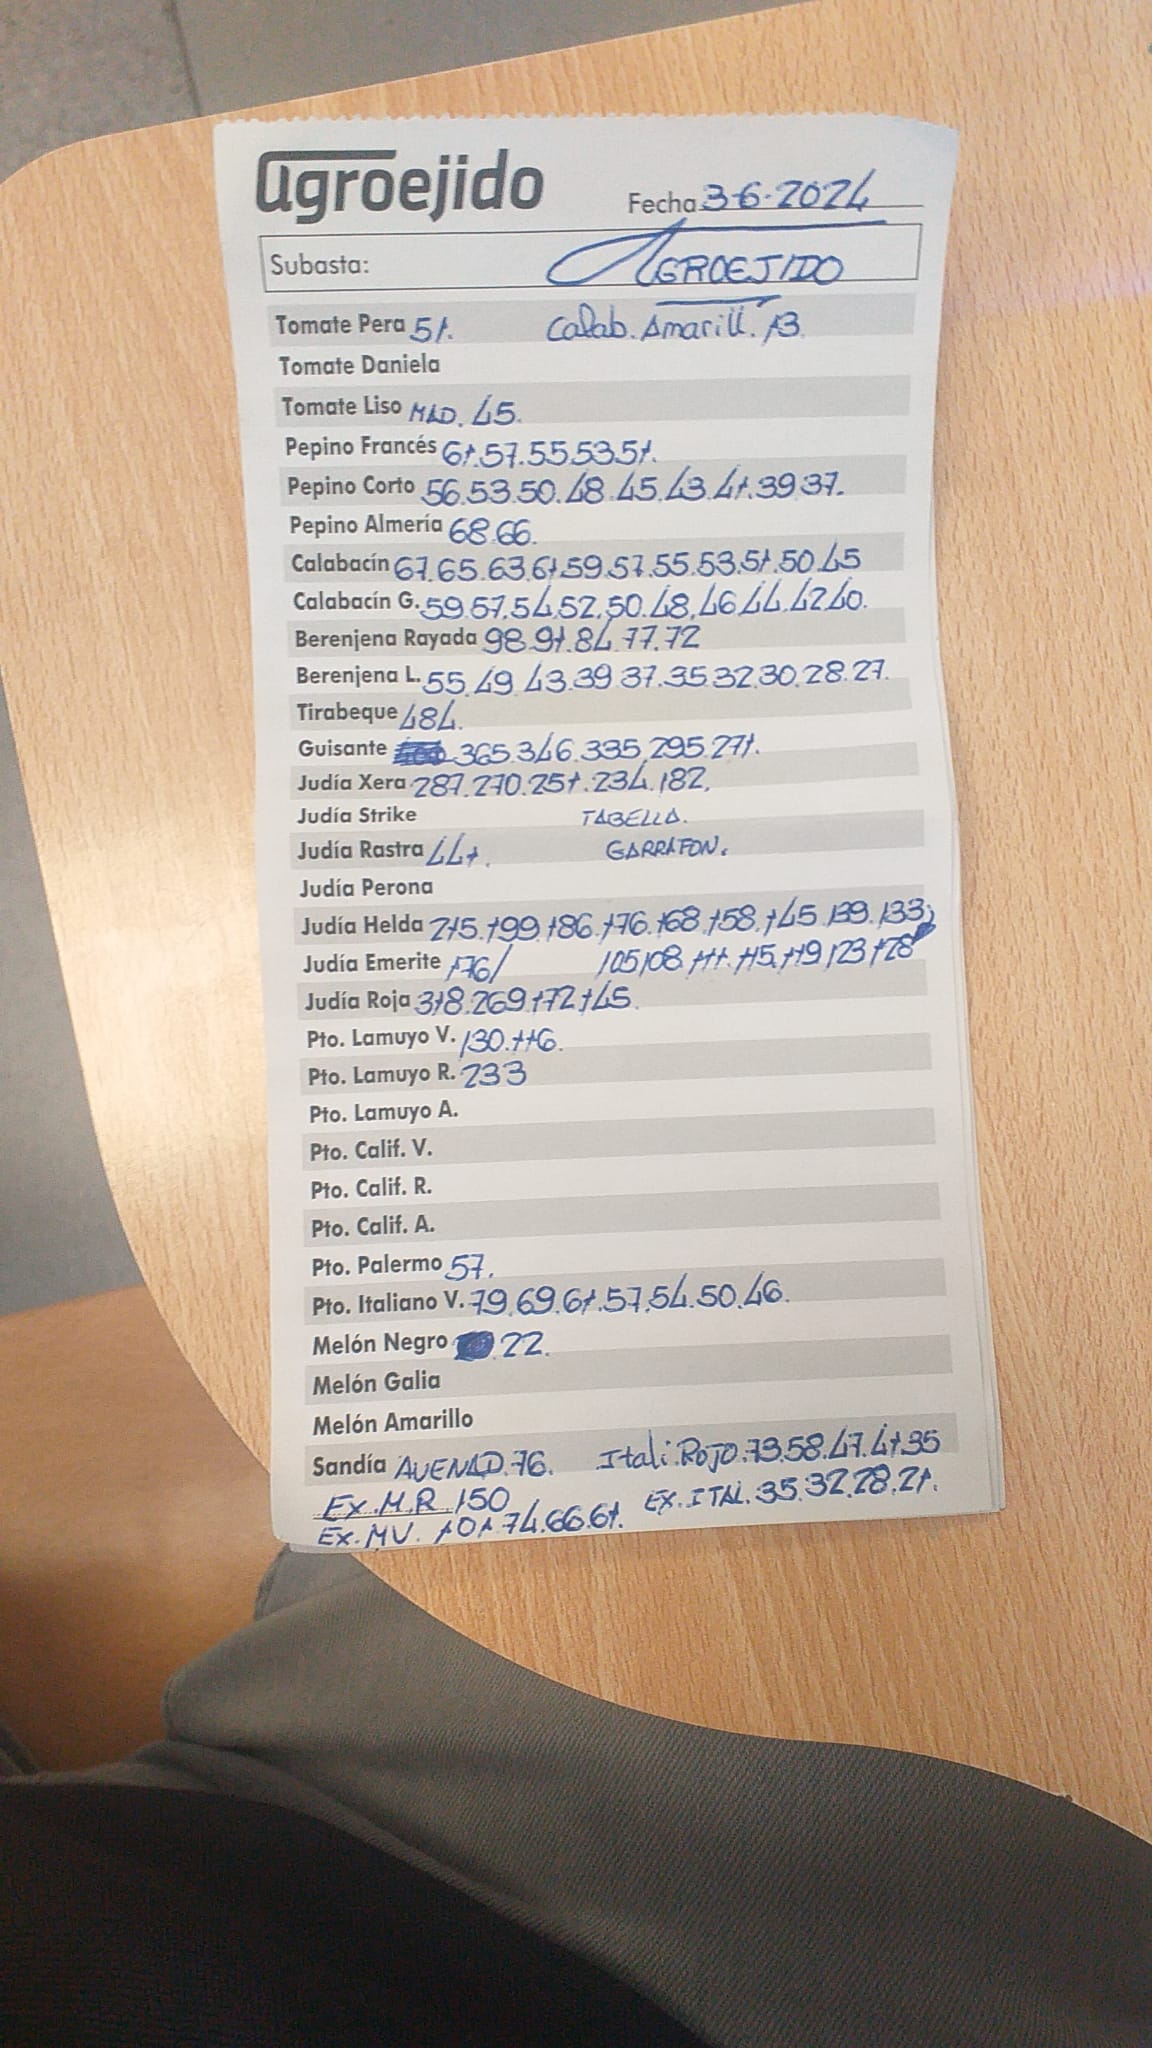 agroejido
Fecha 3-6-2024
Subasta: AGROEJIDO
Tomate Pera 51. Calab. Amarill. 13
Tomate Daniela
Tomate Liso MAD. 45.
Pepino Francés 61.57.55.53.51.
Pepino Corto 56.53.50.48.45.43.41.39.37.
Pepino Almería 68.66.
Calabacín 67.65.63.61.59.57.55.53.51.50.45
Calabacín G. 59.57.54.52.50.48.46.44.42.40.
Berenjena Rayada 98.91.84.77.72
Berenjena L. 55.49.43.39.37.35.32.30.28.27.
Tirabeque 484.
Guisante 365.346.335.295.271.
Judía Xera 287.270.251.234.182.
Judía Strike TABELLA.
Judía Rastra 441. GARRAFON.
Judía Perona
Judía Helda 215.199.186.176.168.158.145.139.133,
Judía Emerite 176/ 105.108.111.115.119.123.128
Judía Roja 318.269.172.145.
Pto. Lamuyo V. 130.116.
Pto. Lamuyo R. 233
Pto. Lamuyo A.
Pto. Calif. V.
Pto. Calif. R.
Pto. Calif. A.
Pto. Palermo 57.
Pto. Italiano V. 79.69.61.57.54.50.46.
Melón Negro 22.
Melón Galia
Melón Amarillo
Sandía AVENAD. 76. Itali. Rojo. 73.58.47.41.35
Ex. M.R. 150 EX. ITAL. 35.32.28.21.
Ex. MV. 101.74.66.61.